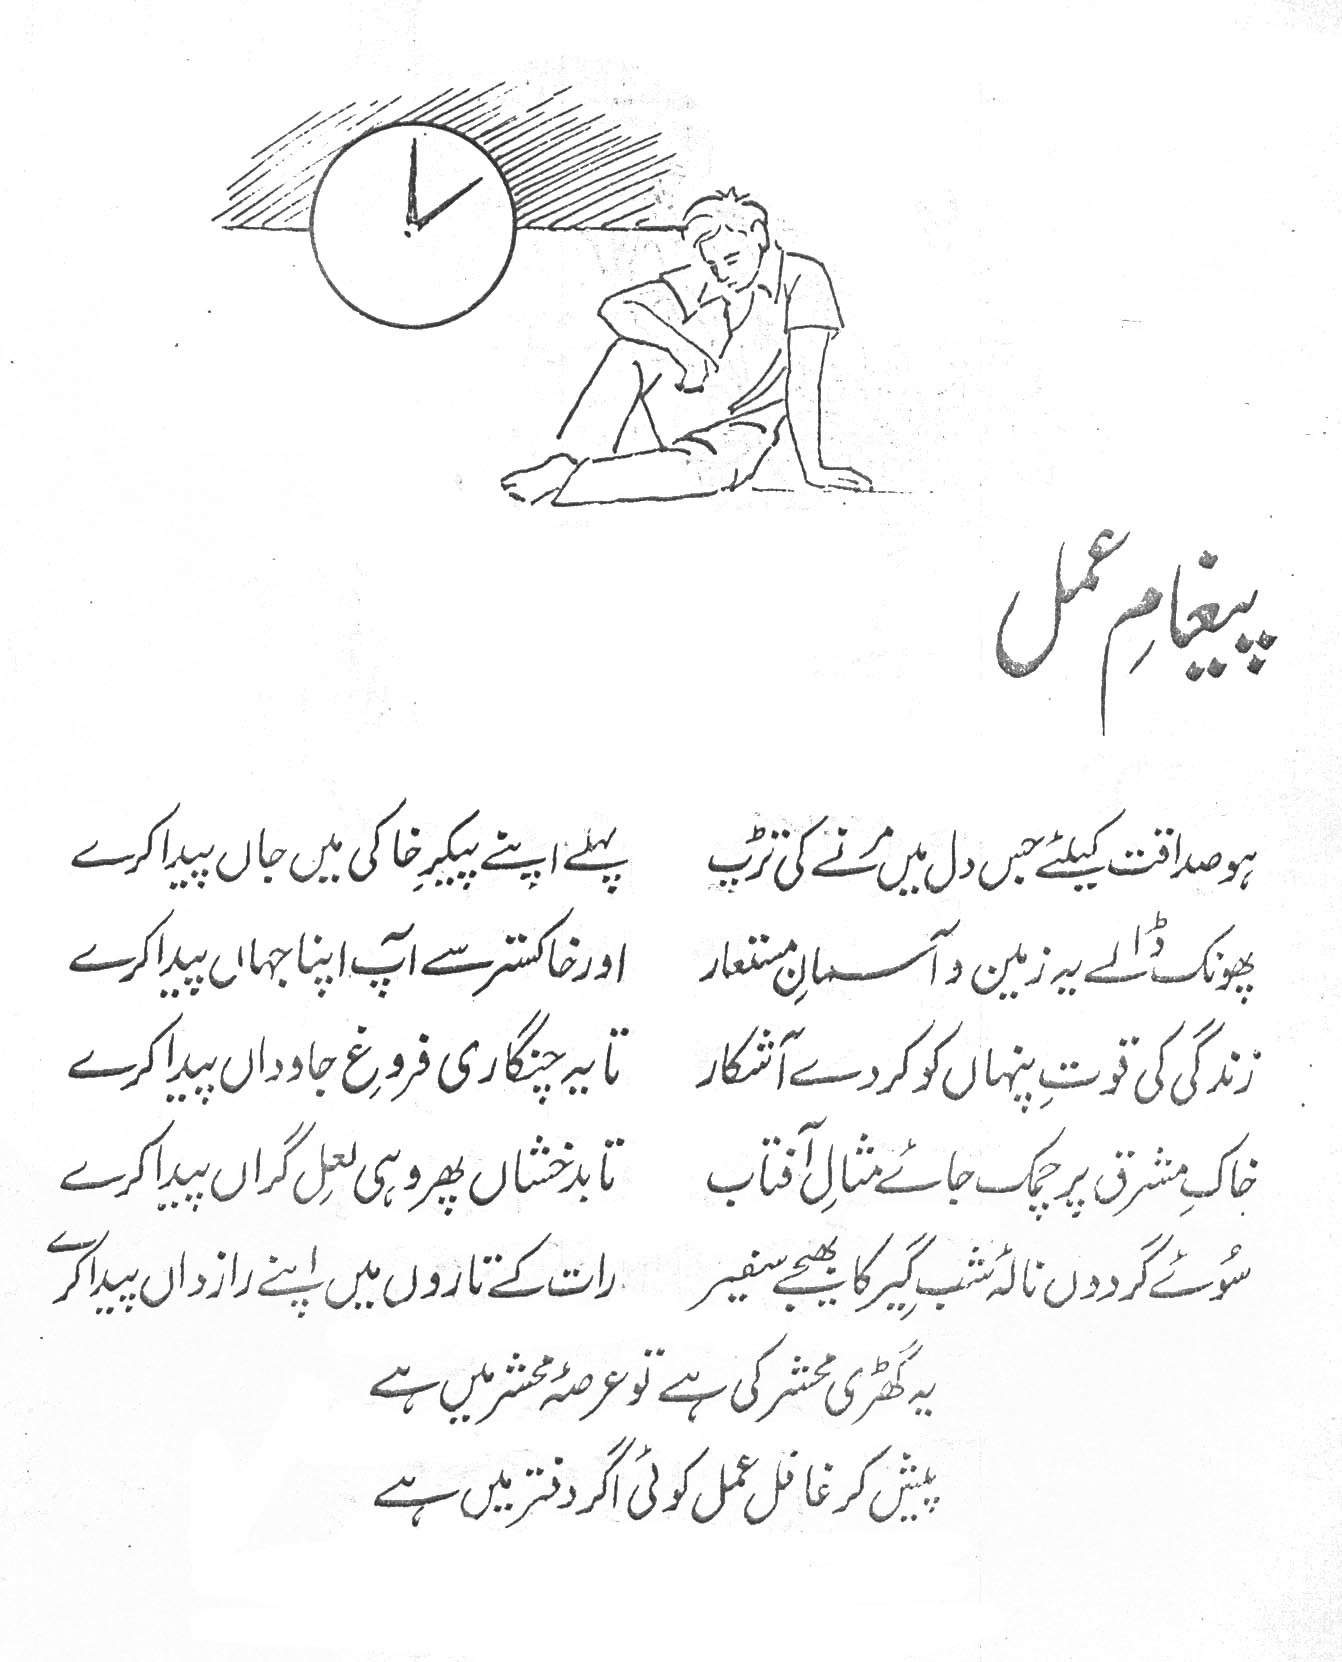 پیغامِ عمل
ہو صداقت کیلئے جس دل میں مرنے کی تڑپ پہلے اپنے پیکرِ خاکی میں جاں پیدا کرے
پھونک ڈالے یہ زمین و آسمانِ مستعار اور خاکستر سے آپ اپنا جہاں پیدا کرے
زندگی کی قوتِ پنہاں کو کر دے آشکار تا یہ چنگاری فروغِ جاوداں پیدا کرے
خاکِ مشرق پر چمک جائے مثالِ آفتاب تا بدخشاں پھر وہی لعلِ گراں پیدا کرے
سُوئے گردوں نالۂ شب گیر کا بھیجے سفیر رات کے تاروں میں اپنے رازداں پیدا کرے
یہ گھڑی محشر کی ہے تو عرصۂ محشر میں ہے
پیش کر غافل عمل کوئی اگر دفتر میں ہے